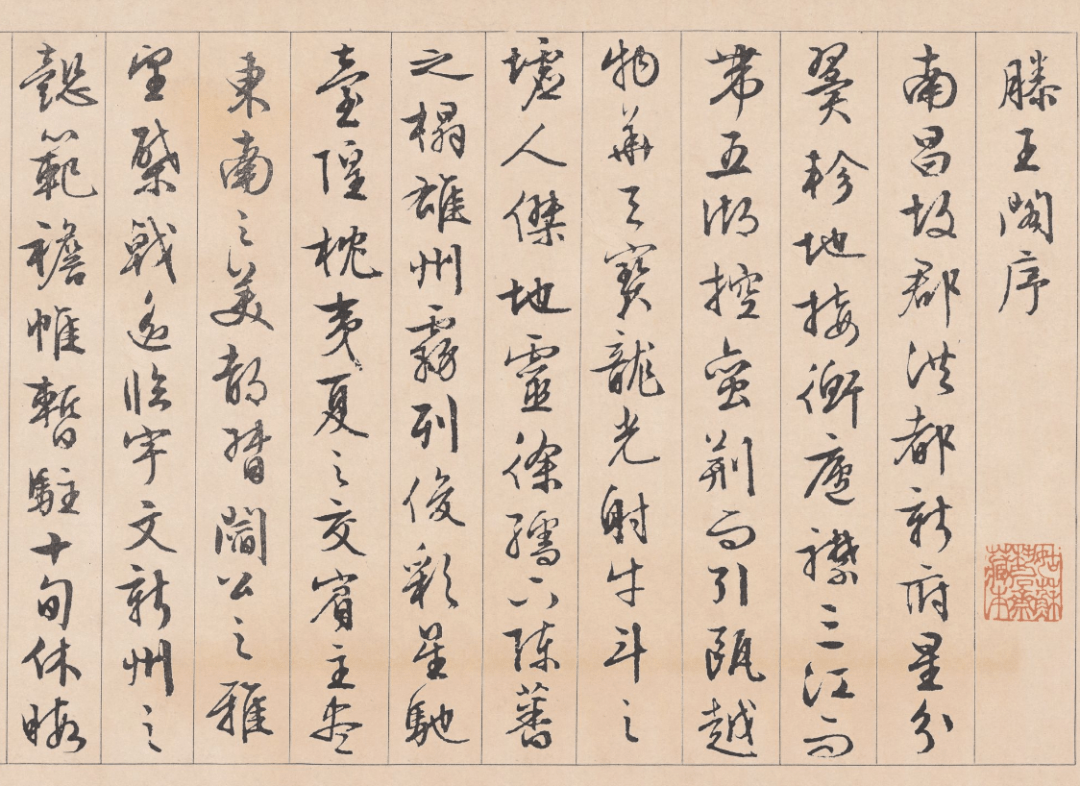 滕王閣序
南昌故郡洪都新府星分
翼軫地接衡廬襟三江而
帶五湖控蠻荊而引甌越
物華天寶龍光射牛斗之
墟人傑地靈徐孺下陳蕃
之榻雄州霧列俊彩星馳
臺隍枕夷夏之交賓主盡
東南之美都督閻公之雅
望棨戟遙臨宇文新州之
懿範襜帷暫駐十旬休暇